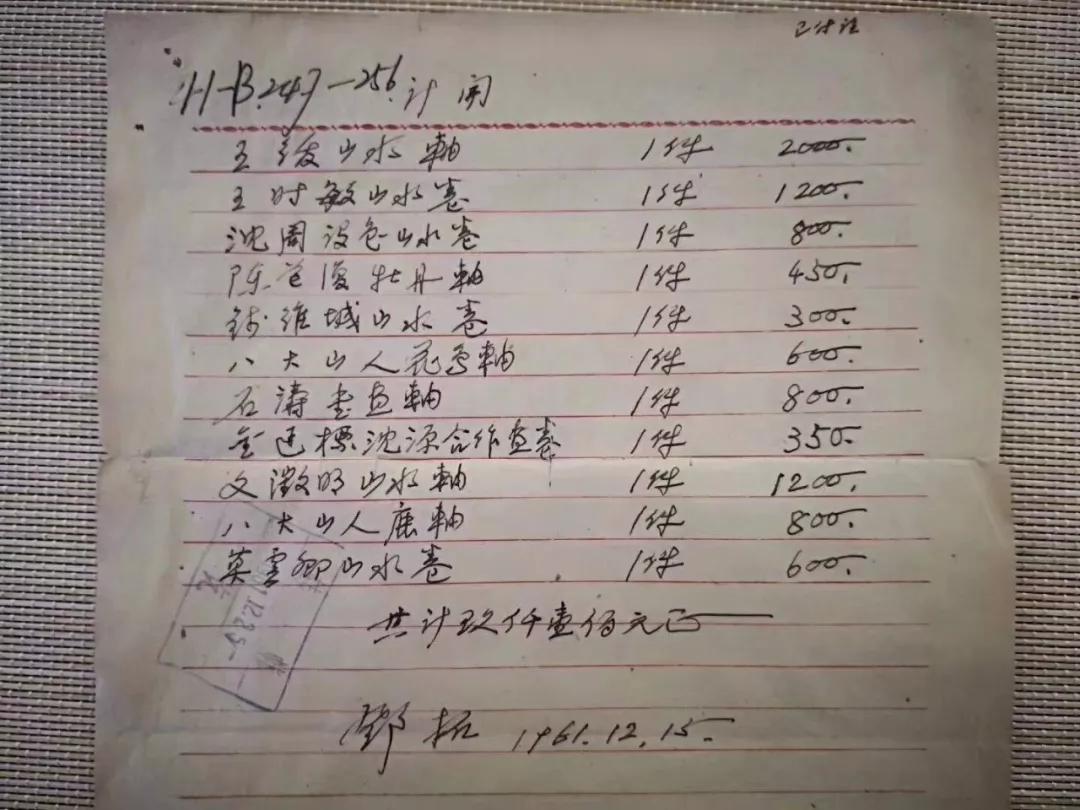 已付注
H-B.247-256. 计开
王绂山水軸 1件 2000.
王时敏山水卷 1件 1200.
沈周设色山水卷 1件 800.
陈道復牡丹軸 1件 450.
钱维城山水卷 1件 300.
八大山人花鸟軸 1件 600.
石涛画軸 1件 800.
金廷標沈源合作畫卷 1件 350.
文徵明山水軸 1件 1200.
八大山人鹿軸 1件 800.
莫雲卿山水卷 1件 600.
共计玖仟壹佰元正
鄧拓 1961.12.15.